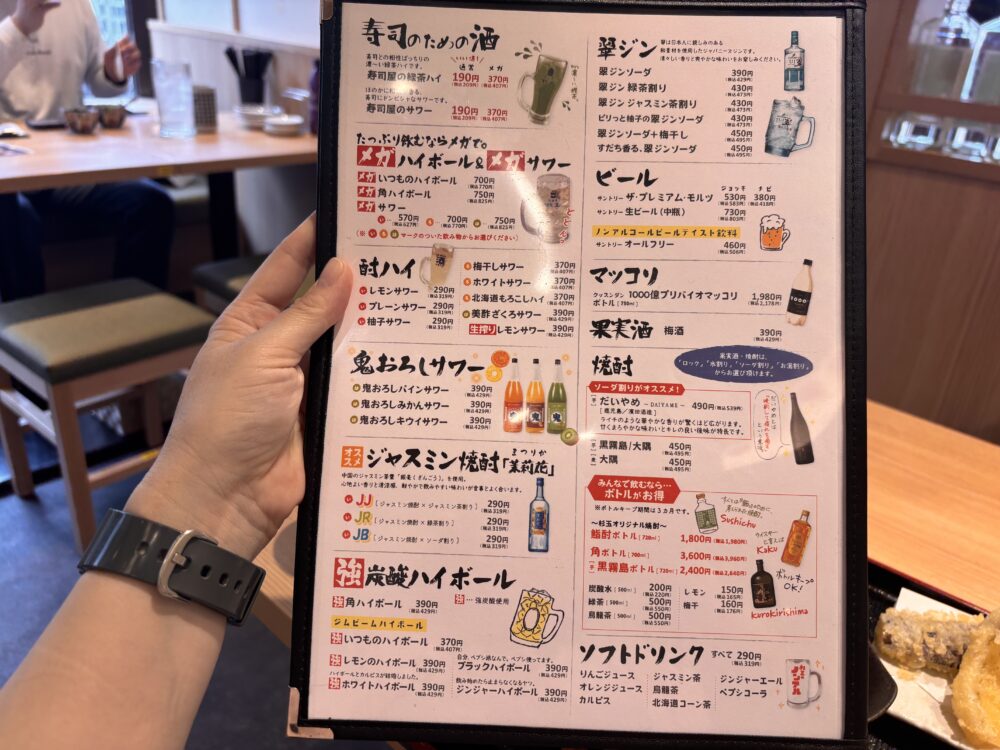 寿司のための酒
寿司との相性ばっちりの
濃〜い緑茶ハイです。
通常 メガ
寿司屋の緑茶ハイ 190円(税込209円) 370円(税込407円)
寿司にドンピシャなサワーです。
寿司屋のサワー 190円(税込209円) 370円(税込407円)
たっぷり飲むならメガで。
メガハイボール&メガサワー
メガ いつものハイボール 700円(税込770円)
メガ 角ハイボール 750円(税込825円)
メガ サワー
い… 570円(税込627円) 700円(税込770円) 750円(税込825円)
(※ マークのついた飲み物からお選びください)
酎ハイ
い レモンサワー 290円(税込319円)
い プレーンサワー 290円(税込319円)
い 柚子サワー 290円(税込319円)
梅干しサワー 370円(税込407円)
ホワイトサワー 370円(税込407円)
北海道もろこしハイ 370円(税込407円)
美酢ざくろサワー 390円(税込429円)
生搾りレモンサワー 390円(税込429円)
鬼おろしサワー
鬼おろしパインサワー 390円(税込429円)
鬼おろしみかんサワー 390円(税込429円)
鬼おろしキウイサワー 390円(税込429円)
オススメ ジャスミン焼酎「茉莉花」
まつりか
心地よい香りと清涼感、軽やかで飲みやすい味わいが食事とよく合います。
い JJ [ジャスミン焼酎×ジャスミン茶割り] 290円(税込319円)
い JR [ジャスミン焼酎×緑茶割り] 290円(税込319円)
い JB [ジャスミン焼酎×ソーダ割り] 290円(税込319円)
強炭酸ハイボール
強 角ハイボール 390円(税込429円)
強… 強炭酸使用
ジムビームハイボール
強 いつものハイボール 370円(税込407円)
強 レモンのハイボール 390円(税込429円)
ハイボールとカルピスが結婚しました。
強 ホワイトハイボール 390円(税込429円)
自分、ペプシ派なんで、ペプシ使ってます。
ブラックハイボール 390円(税込429円)
飲み始めたら止まらなくなるヤツ。
ジンジャーハイボール 390円(税込429円)
翠ジン
翠は日本人に親しみのある
和素材を使用したジャパニーズジンです。
清々しい香りと爽やかな味わいをお楽しみください。
翠ジンソーダ 390円(税込429円)
翠ジン 緑茶割り 430円(税込473円)
翠ジン ジャスミン茶割り 430円(税込473円)
ピリっと柚子の翠ジンソーダ 430円(税込473円)
翠ジンソーダ+梅干し 450円(税込495円)
すだち香る、翠ジンソーダ 450円(税込495円)
ビール
ジョッキ チビ
サントリー ザ・プレミアム・モルツ 530円(税込583円) 380円(税込418円)
サントリー 生ビール(中瓶) 730円(税込803円)
ノンアルコールビールテイスト飲料
サントリー オールフリー 460円(税込506円)
マッコリ
クッスンダン 1000億プリバイオマッコリ
ボトル[750ml] 1,980円(税込2,178円)
果実酒 梅酒 390円(税込429円)
焼酎
果実酒・焼酎は、
「ロック」「水割り」「ソーダ割り」「お湯割り」
からお選び頂けます。
ソーダ割りがオススメ!
[芋] だいやめ 〜DAIYAME〜 490円(税込539円)
[鹿児島/濵田酒造]
ライチのような華やかな香りが驚くほど広がります。
甘くまろやかな味わいとキレの良い後味が特長です。
[芋] 黒霧島/大隅 450円(税込495円)
[麦] 大隅 450円(税込495円)
みんなで飲むなら…
ボトルがお得
※ボトルキープ期間は3カ月です。
〜杉玉オリジナル焼酎〜
鮨酎ボトル[720ml] 1,800円(税込1,980円)
角ボトル[700ml] 3,600円(税込3,960円)
[芋] 黒霧島ボトル[720ml] 2,400円(税込2,640円)
Sushichu
ウイスキーと言えば
Kaku
ボトルキープOK!
Kurokirishima
炭酸水[500ml] 200円(税込220円)
緑茶[500ml] 500円(税込550円)
烏龍茶[500ml] 500円(税込550円)
レモン 150円(税込165円)
梅干 160円(税込176円)
ソフトドリンク すべて 290円(税込319円)
りんごジュース ジャスミン茶 ジンジャーエール
オレンジジュース 烏龍茶 ペプシコーラ
カルピス 北海道コーン茶